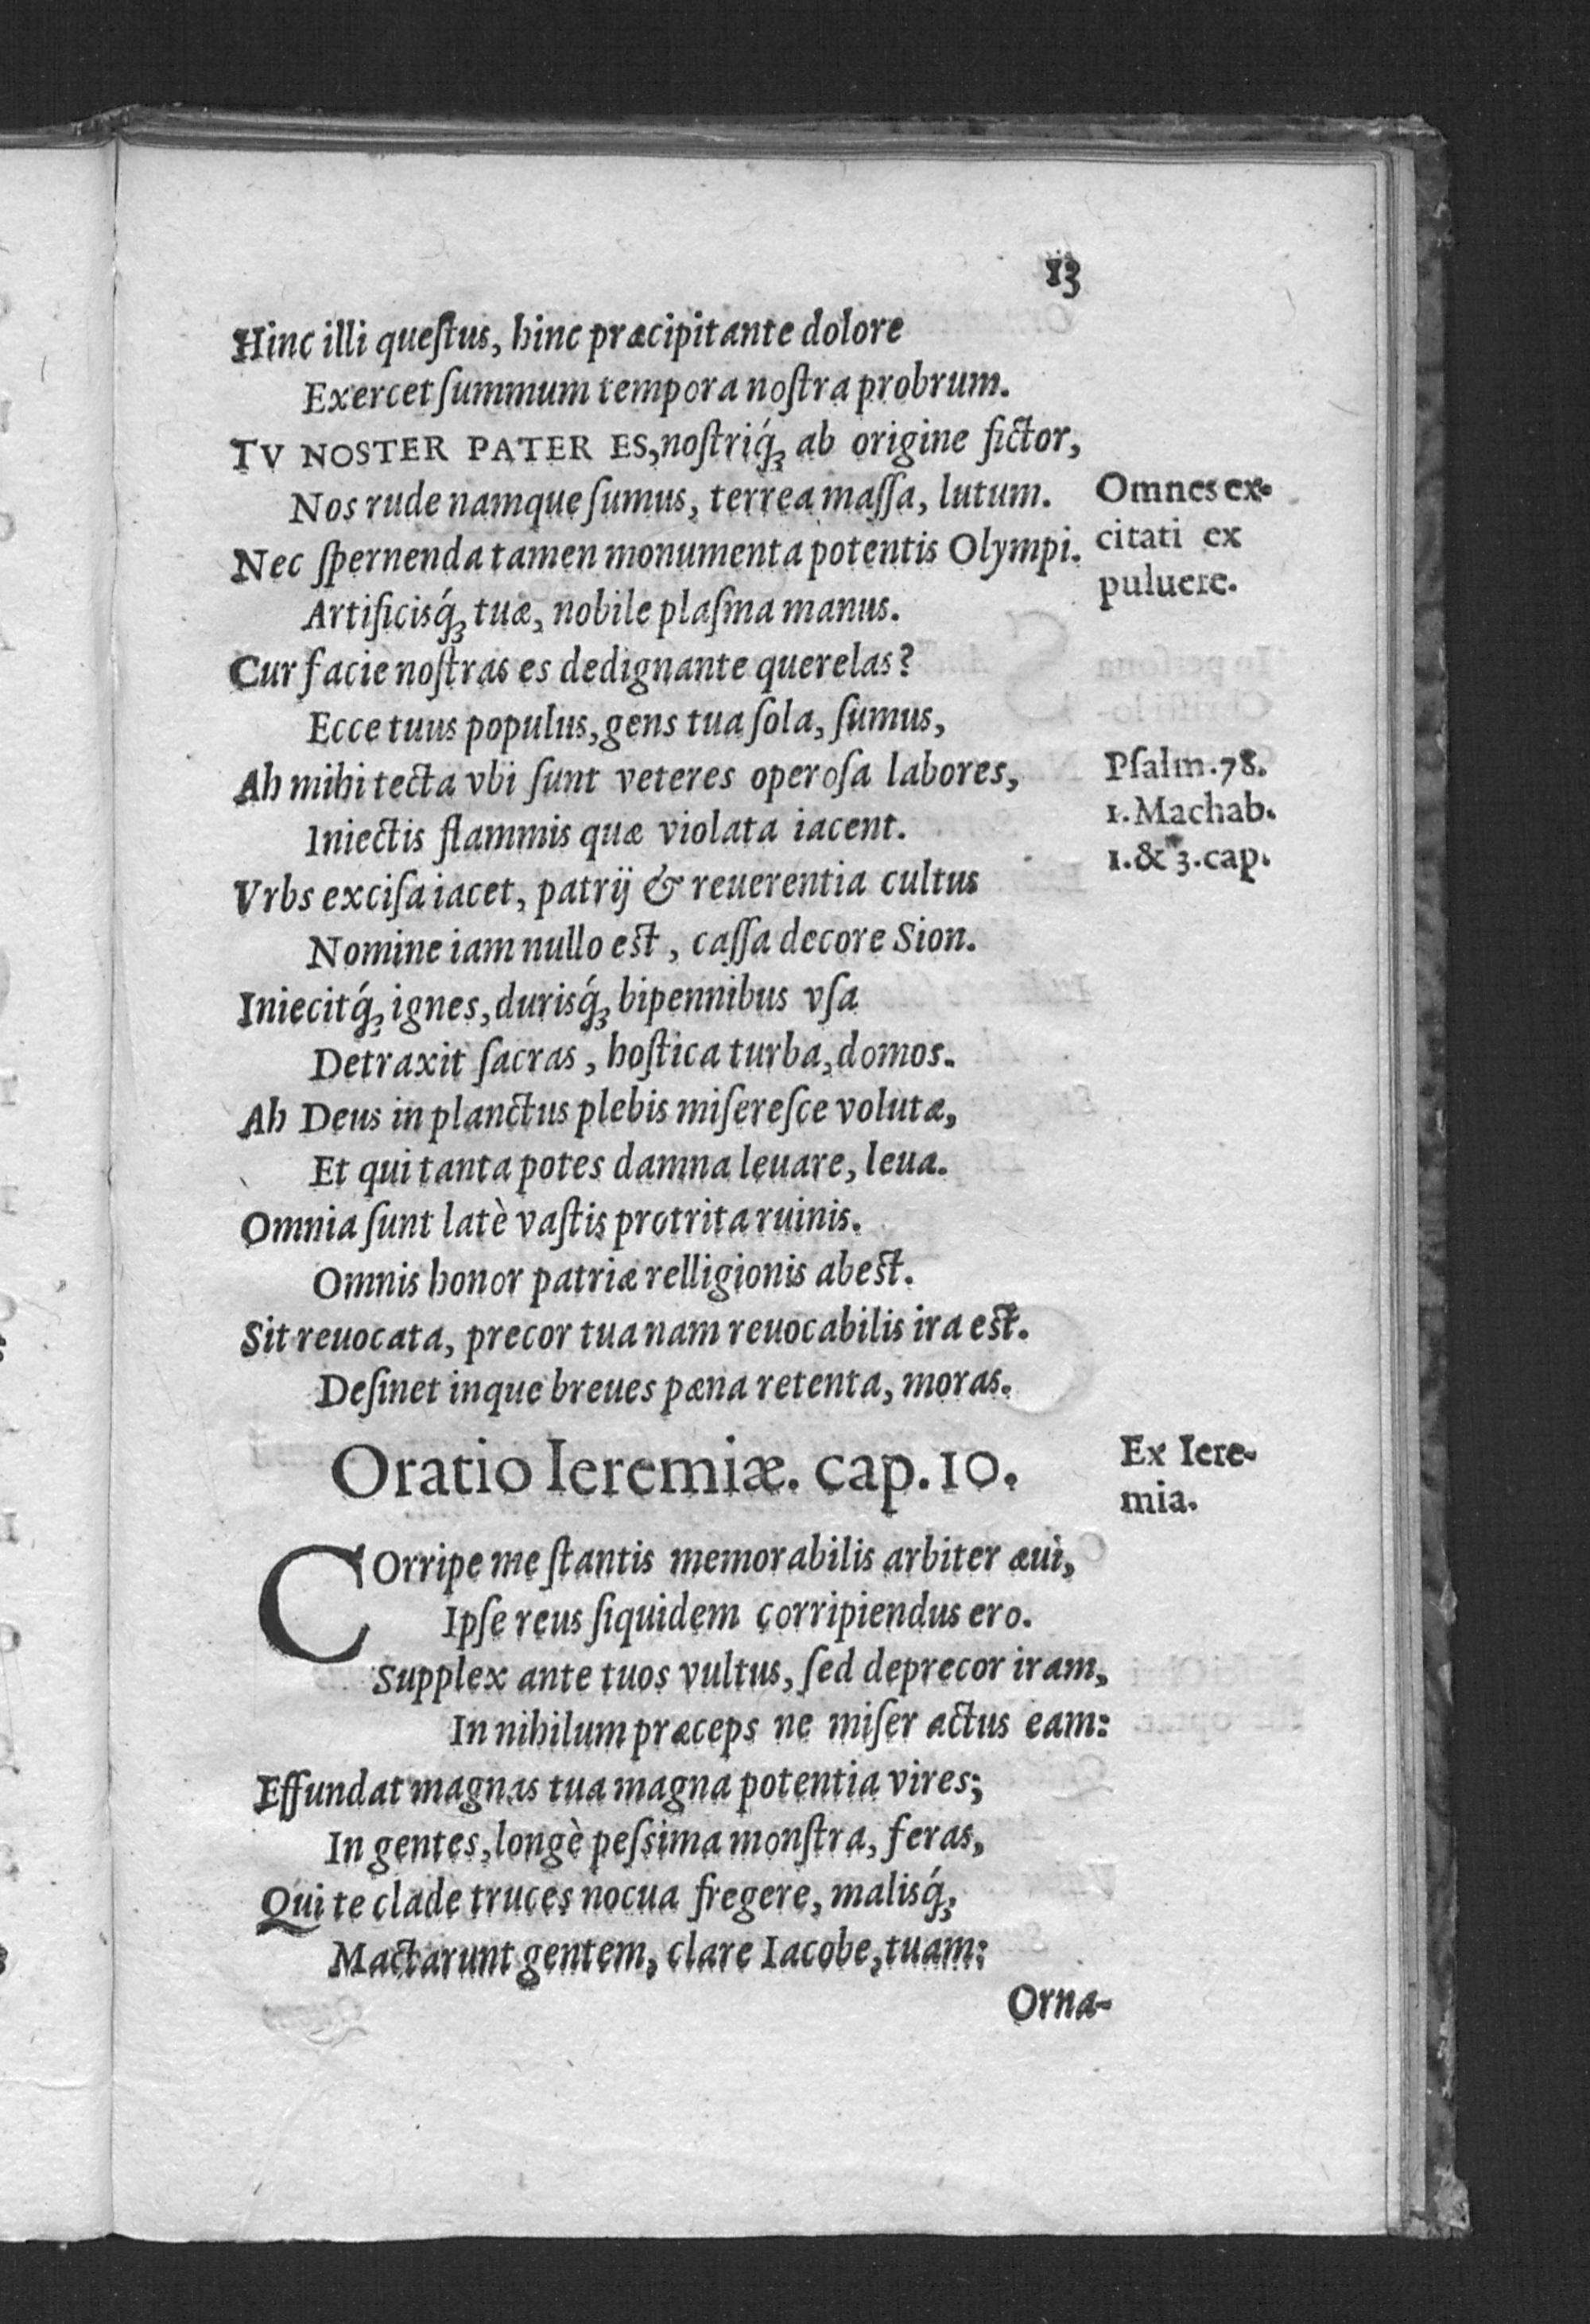 13
Hinc illi queſtus, hinc præcipitante dolore
Exercet ſummum tempora noſtra probrum.
TV NOSTER PATER ES, noſtriq́ꝫ ab origine fictor,
Nos rude namque ſumus, terrea maſſa, lutum.
Omnes ex-
citati ex
puluere.
Nec ſpernenda tamen monumenta potentis Olympi.
Artificisq́ꝫ tuæ, nobile plaſma manus.
Cur facie noſtras es dedignante querelas?
Ecce tuus populus, gens tua ſola, ſumus,
Ah mihi tecta vbi ſunt veteres operoſa labores,
Psalm. 78.
1. Machab.
1. & 3. cap.
Iniectis flammis quæ violata iacent.
Vrbs exciſa iacet, patrij & reuerentia cultus
Nomine iam nullo est, caſſa decore Sion.
Iniecitq́ꝫ ignes, durisq́ꝫ bipennibus vſa
Detraxit ſacras, hoſtica turba, domos.
Ah Deus in planctus plebis miſereſce volutæ,
Et qui tanta potes damna leuare, leua.
Omnia ſunt latè vaſtis protrita ruinis.
Omnis honor patriæ relligionis abest.
Sit reuocata, precor tua nam reuocabilis ira est.
Deſinet inque breues pæna retenta, moras.
Oratio Ieremiæ. cap. 10.
Ex Iere-
mia.
COrripe me ſtantis memorabilis arbiter æui,
Ipſe reus ſiquidem corripiendus ero.
Supplex ante tuos vultus, ſed deprecor iram,
In nihilum præceps ne miſer actus eam:
Effundat magnas tua magna potentia vires;
In gentes, longè peſsima monſtra, feras,
Qui te clade truces nocua fregere, malisq́ꝫ
Mactarunt gentem, clare Iacobe, tuam:
Orna-